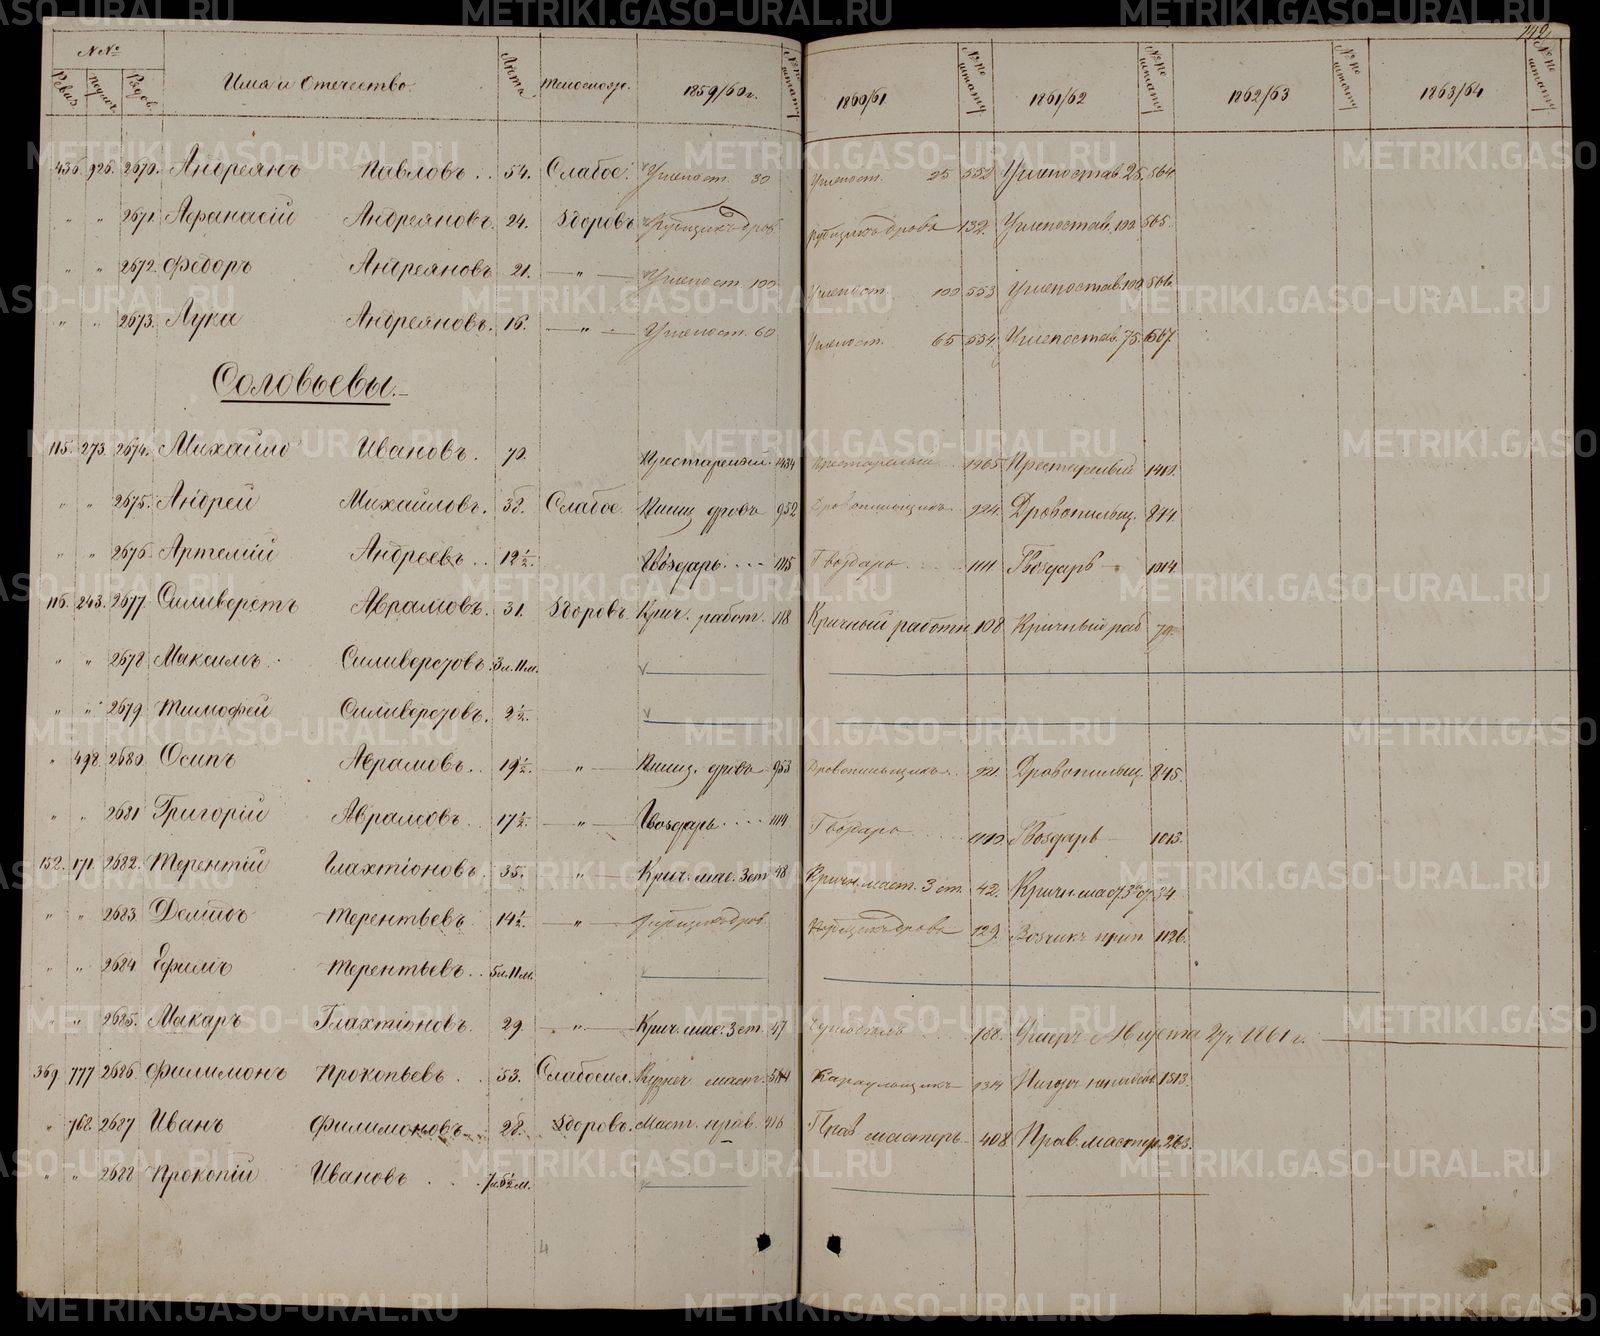 142
№№ Имя и Отчество. Лѣта Телослож. 1859/60 г. №№ по штату 1860/61 №№ по штату 1861/62 №№ по штату 1862/63 №№ по штату 1863/64 №№ по штату
Ревиз. Рядов.
436. 926. 2670. Андреянъ Павловъ . . 54. Слабое. Углепост. 30 Углепост. 25 552 Углепостав. 25. 564
" " 2671. Афанасій Андреяновъ. 24. Здоровъ Рубщикъ дров. Рубщикъ дровъ 132. Углепостав. 100. 565.
" " 2672. Федоръ Андреяновъ 21. — " — Углепост. 100 Углепост. 100 553 Углепостав. 100. 566.
" " 2673. Лука Андреяновъ. 16. — " — Углепост. 60 Углепост. 65 554. Углепостав. 75. 567.
Соловьевы.
115. 273. 2674. Михайло Ивановъ. 70. Престарелый 1434 Престарелый 1465 Престарелый 1411.
" " 2675. Андрей Михайловъ. 38. Слабое. Пилщ. дровъ 952 Дровопильщикъ 924. Дровопильщ. 844.
" " 2676. Артемій Андреевъ . . 12½. Гвоздарь. . . . 1115 Гвоздарь. 1111 Гвоздарь — 1014.
116. 243. 2677. Силиверстъ Аврамовъ. 31. Здоровъ. Крич. работ. 118 Кричный работн. 108 Кричный раб. 79.
" " 2678 Максимъ. Силиверстовъ. 3 л. 11 м.
" " 2679. Тимофей Силиверстовъ. 2½.
" 498. 2680. Осипъ Аврамовъ. . 19½. — " — Пилщ. дровъ 953 Дровопильщикъ. 921. Дровопильщ. 845.
" " 2681 Григорій Аврамовъ. . 17½. — " — Гвоздарь. . . . 1114 Гвоздарь . . . 1110. Гвоздарь — 1013.
152. 171. 2682. Терентій Глахтіоновъ. 35. — " — Крич. мас. 3 ст. 48 Кричн. маст. 3 ст. 42. Кричн. маст. 3й ст. 34
" " 2683. Демидъ Терентьевъ 14½. — " — Рубщикъ дров. Рубщикъ дровъ 129. Возчикъ прип. 1126.
" " 2684. Ефимъ Терентьевъ. . 5 л. 11 м.
" " 2685. Макаръ Глахтіоновъ. 29. — " — Крич. мас. 3 ст. 47 168. Умеръ Августа 27го 1861 г.
369. 777 2686. Филимонъ Прокопьевъ . . 53. Слабосил. Кузнеч. маст. Караульщикъ 1314 1513.
" 768. 2687 Иванъ Филимоновъ 28. Здоровъ. Маст. прав. 416 Прав. мастеръ 408 Прав. мастер. 263.
" " 2688 Прокопій Ивановъ . . . 7 л. 5½ м.
4
METRIKI.GASO-URAL.RU